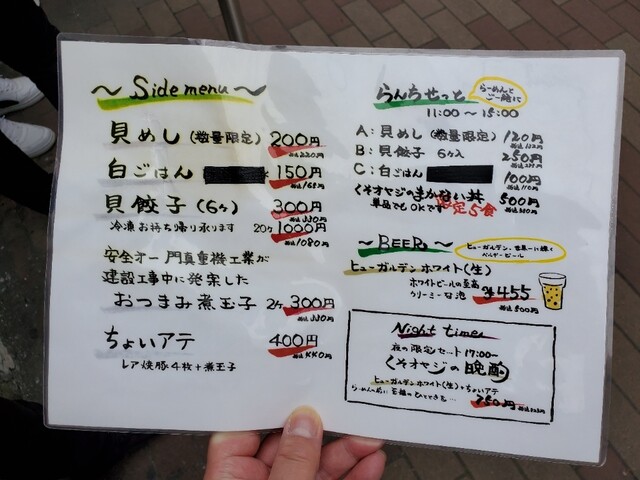 ～ Side menu ～
貝めし (数量限定) 200円
税込220円
白ごはん 150円
税込165円
貝餃子 (6ヶ) 300円
税込330円
冷凍お持ち帰り承ります 20ヶ 1000円
税込1080円
安全オー門真重機工業が
建設工事中に発案した
おつまみ煮玉子 2ヶ 300円
税込330円
ちょいアテ 400円
税込440円
レア焼豚4枚+煮玉子
らんちせっと らーめんとご一緒に
11:00～15:00
A: 貝めし (数量限定) 120円
B: 貝餃子 6ヶ入 250円
C: 白ごはん 100円
税込110円
くそオヤジのまかない丼 500円
単品でもOKです 限定5食 税込550円
～BEER～
ヒューガルデン、世界一に輝くベルギービール
ヒューガルデンホワイト(生)
ホワイトビールの至高
クリーミーな泡 ¥455
税込500円
Night time
夜の限定セット 17:00～
くそオヤジの晩酌
ヒューガルデンホワイト(生)+ちょいアテ
らーめんの前に至福のひとときを… 750円